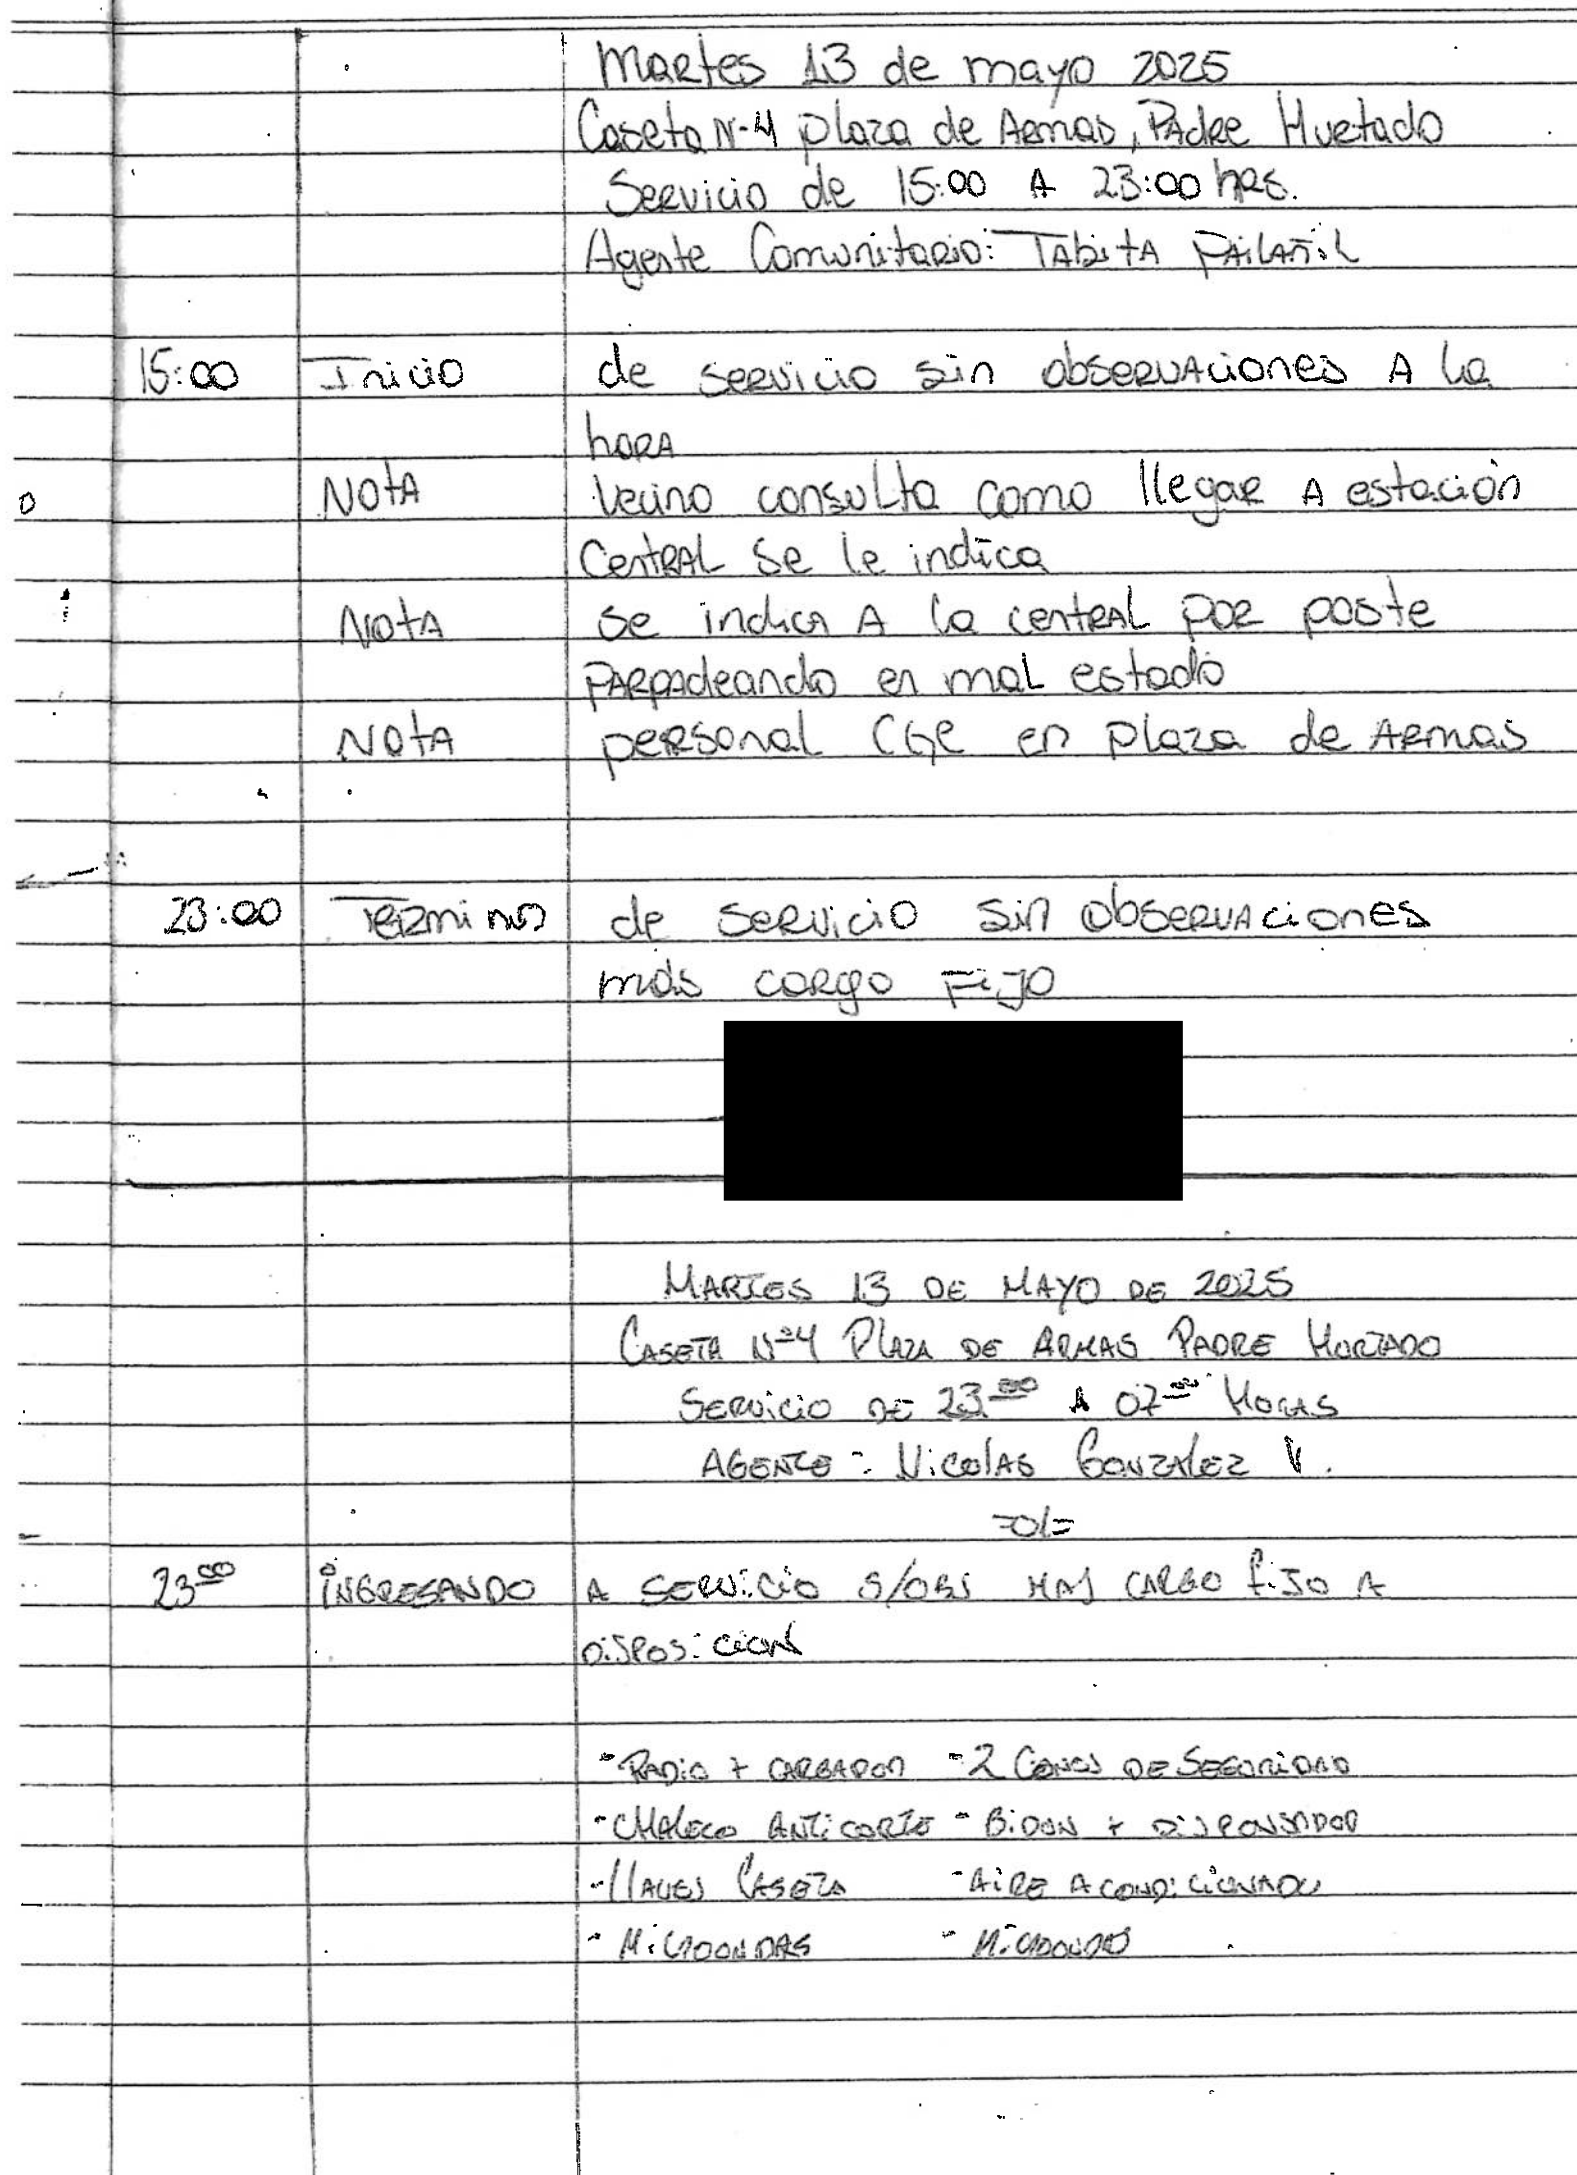 Martes 13 de mayo 2025
Caseta N-4 plaza de Armas, Padre Hurtado
Servicio de 15:00 A 23:00 hrs.
Agente Comunitario: Tabita Pailañil
15:00 Inicio de servicio sin observaciones A la
hora
Nota Vecino consulta como llegar A estación
Central se le indica
Nota se indica A la central por poste
parpadeando en mal estado
Nota personal CGE en plaza de Armas
23:00 Termino de servicio sin observaciones
más cargo Fijo
MARTES 13 DE MAYO DE 2025
CASETA Nº4 PLAZA DE ARMAS PADRE HURTADO
SERVICIO DE 23:00 A 07:00 HORAS
AGENTE: NICOLAS GONZALEZ V.
=0/=
23:00 INGRESANDO A SERVICIO S/OBS MAS CARGO FIJO A
DISPOSICION
- RADIO + CARGADOR - 2 CONOS DE SEGURIDAD
- CHALECO ANTICORTE - BIDON + DISPENSADOR
- LLAVES CASETA - AIRE ACONDICIONADO
- MICROONDAS - MICROONDO